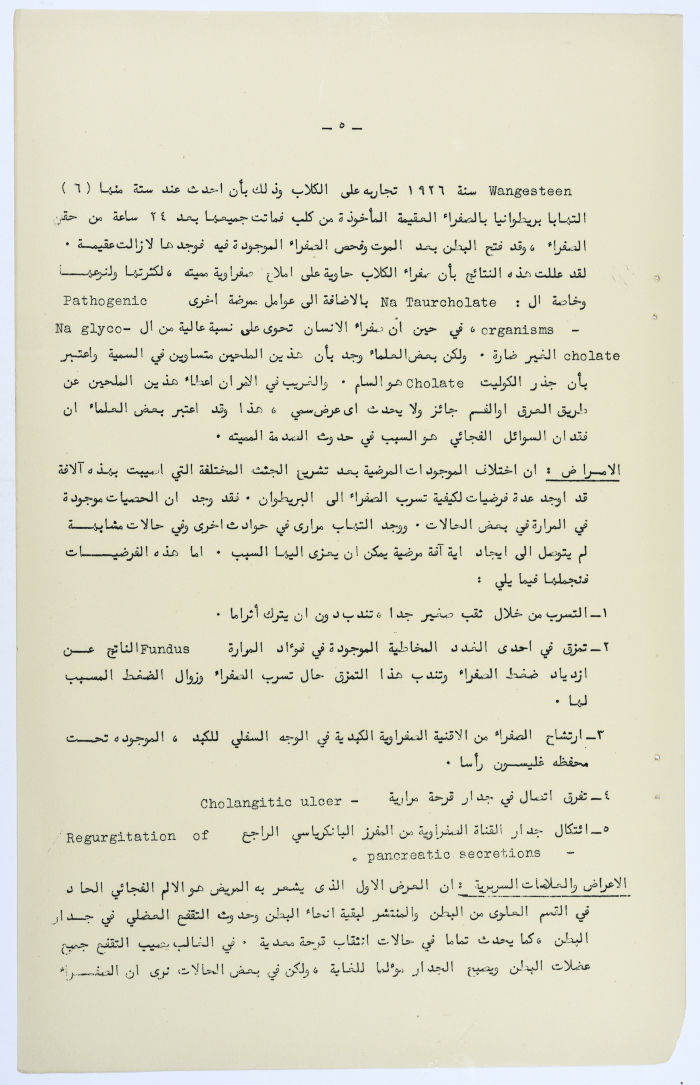 — ٥ —
Wangesteen سنة ١٩٢٦ تجاربه على الكلاب وذلك بأن احدث عند ستة منها (٦)
التهابا بريطوانيا بالصفراء العقيمة المأخوذة من كلب فماتت جميعها بعد ٢٤ ساعة من حقن
الصفراء ، وقد فتح البطن بعد الموت وفحص الصفراء الموجودة فيه فوجدها لازالت عقيمة .
لقد عللت هذه النتائج بأن صفراء الكلاب حاوية على املاح صفراوية مميته ، لكثرتها ولنوعهـا
وخاصة ال : Na Taurcholate بالاضافة الى عوامل ممرضة اخرى Pathogenic
organisms ، في حين ان صفراء الانسان تحوى على نسبة عالية من ال Na glyco-
cholate الغير ضارة . ولكن بعض العلماء وجد بأن هذين الملحين متساوين في السمية واعتبر
بأن جذر الكوليت Cholate هو السام . والغريب في الامر ان اعطاء هذين الملحين عن
طريق العرق اوالفم جائز ولا يحدث اى عرض سمي ، هذا وقد اعتبر بعض العلماء ان
فقدان السوائل الفجائي هو السبب في حدوث الصدمة المميته .
الامراض : ان اختلاف الموجودات المرضية بعد تشريح الجثث المختلفة التي اصيبت بهذه آلافة
قد اوجد عدة فرضيات لكيفية تسرب الصفراء الى البريطوان . فقد وجد ان الحصيات موجودة
في المرارة في بعض الحالات . ووجد التهاب مرارى في حوادث اخرى وفي حالات مشابهـة
لم يتوصل الى ايجاد اية آفة مرضية يمكن ان يعزى اليها السبب . اما هذه الفرضيـــات
فنجملها فيما يلي :
١ـ التسرب من خلال ثقب صغير جدا ، تندب دون ان يترك أثراما .
٢ـ تمزق في احدى الغدد المخاطية الموجودة في فوءاد المرارة Fundus الناتج عـن
ازدياد ضغط الصفراء وتندب هذا التمزق حال تسرب الصفراء وزوال الضغط المسبب
لها .
٣ـ ارتشاح الصفراء من الاقنية الصفراوية الكبدية في الوجه السفلي للكبد ، الموجوده تحـت
محفظه غليسون رأسا .
٤ـ تفرق اتصال في جدار قرحة مرارية - Cholangitic ulcer
٥ـ ائتكال جدار القناة الصفراوية من المفرز البانكرياسي الراجع Regurgitation of
- pancreatic secretions .
الاعراض والعلامات السريرية : ان العرض الاول الذى يشعر به المريض هو الالم الفجائي الحاد
في القسم العلوى من البطن والمنتشر لبقية انحاء البطن وحدوث التقفع العضلي في جـدار
البطن ، كما يحدث تماما في حالات انثقاب قرحة معدية . في الغالب يصيب التقفع جميع
عضلات البطن ويصبح الجدار موءلما للغاية ، ولكن في بعض الحالات نرى ان الصفـــراء